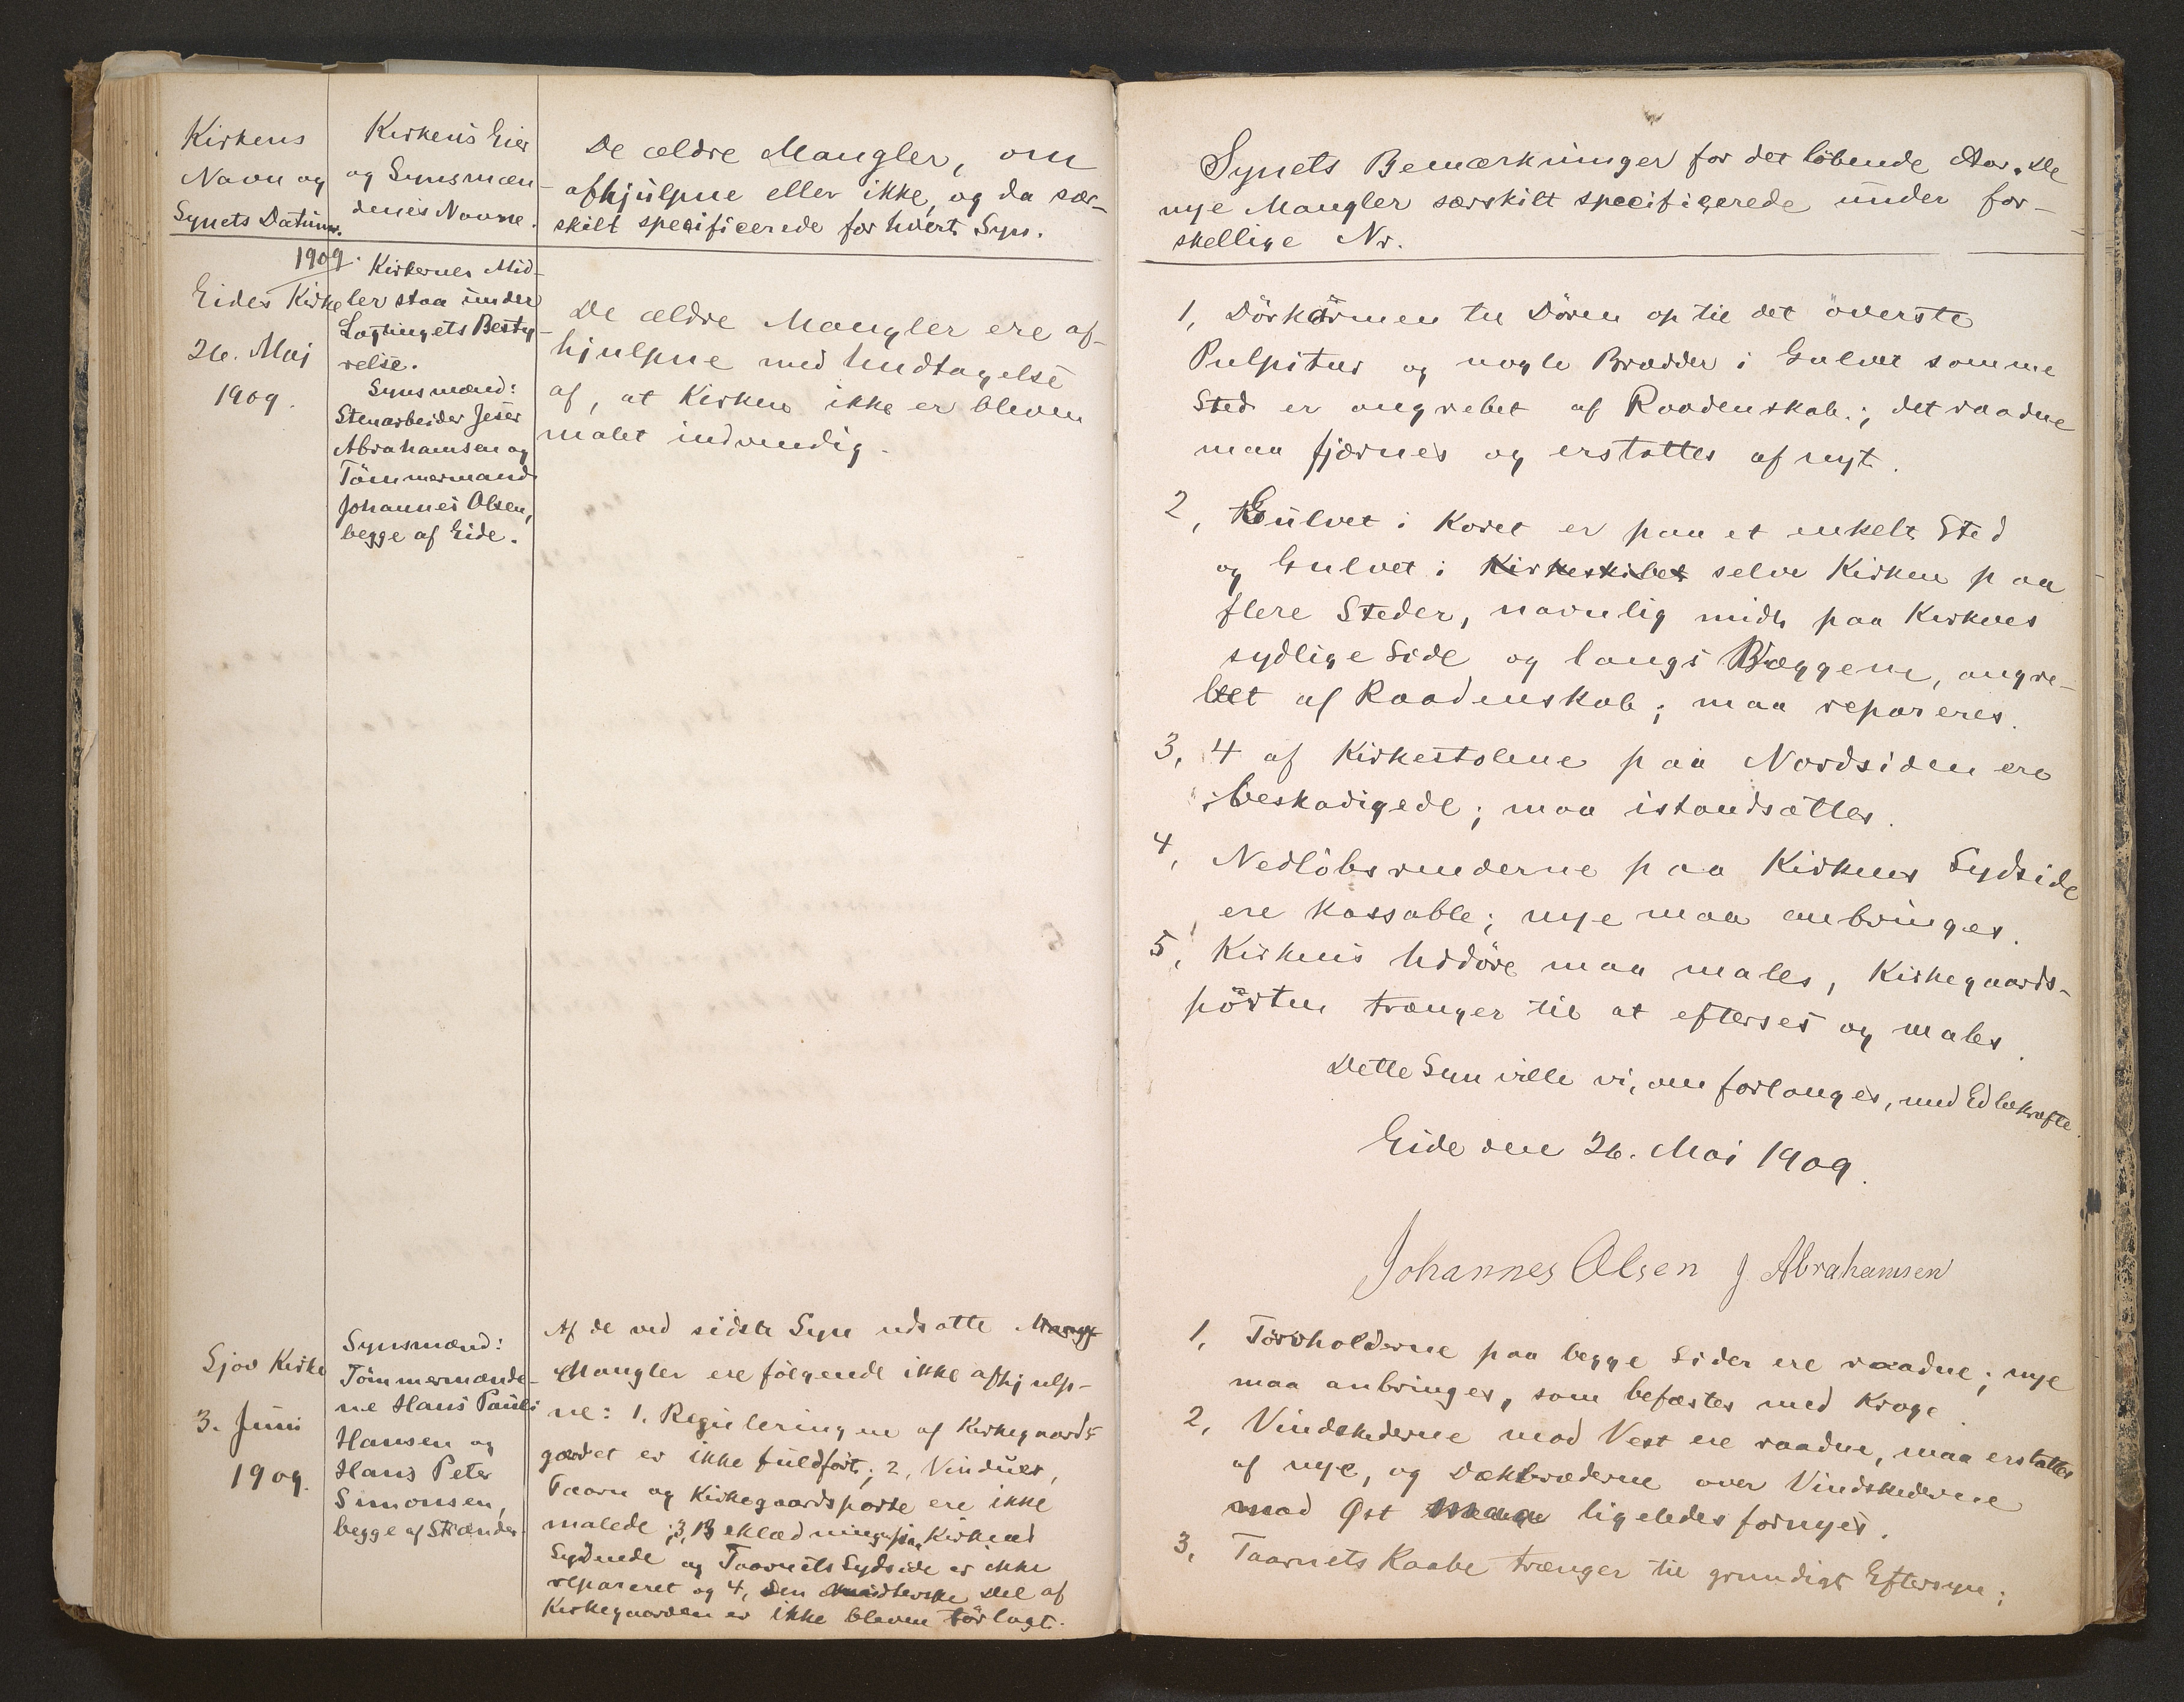 Kirkens
Navn og
Synets Datum.
Kirkens Eier
og Synsmæn-
denes Navne.
De ældre Mangler, om
afhjulpne eller ikke, og da sær-
skilt specificerede for hvert Syn.
1909.
Eides Kirke
26. Maj
1909.
Kirkernes Mid-
ler staa under
Lagtingets Besty-
relse.
Synsmænd:
Stenarbeider Jeser
Abrahamsen og
Tömmermand
Johannes Olsen,
begge af Eide.
De ældre Mangler ere af-
hjulpne med Undtagelse
af, at Kirken ikke er bleven
malet indvendig.
Sjov Kirke
3. Juni
1909.
Synsmænd:
Tömmermænde-
ne Hans Pauli
Hansen og
Hans Peter
Simonsen,
begge af Strænder.
Af de ved sidste Syn udsatte Mangl
Mangler ere følgende ikke afhjulp-
ne: 1. Reguleringen af Kirkegaards-
gærdet er ikke fuldført; 2, Vinduer,
Taarn og Kirkegaardsporte ere ikke
malede; 3, Beklædningen paa Kirkens
Sydende og Taarnets Sydside er ikke
repareret og 4, den midterste Del af
Kirkegaarden er ikke bleven törlagt.
Synets Bemærkninger for det löbende Aar. De
nye Mangler særskilt specificerede under for-
skellige Nr.
1, Dörkarmen til Dören op til det överste
Pulpitur og nogle Brædder i Gulvet samme
Sted er angrebet af Raadenskab; det raadne
maa fjærnes og erstattes af nyt.
2, Gulvet i Koret er paa et enkelt Sted
og Gulvet i Kirkeskibet selve Kirken paa
flere Steder, navnlig midt paa Kirkens
sydlige Side og langs Væggene, angre-
bet af Raadenskab; maa repareres.
3, 4 af Kirkestolene paa Nordsiden ere
beskadigede; maa istandsættes.
4, Nedlöbsrenderne paa Kirkens Sydside
ere kassable; nye maa anbringes.
5, Kirkens Yddöre maa males, Kirkegaards-
pörten trænger til at efterses og males.
Dette Syn ville vi, om forlanges, med Ed bekræfte.
Eide den 26. Mai 1909.
Johannes Olsen J Abrahamsen
1, Törvholderne paa begge Sider ere raadne; nye
maa anbringes, som befæstes med Kroge.
2, Vindskederne mod Vest ere raadne, maa erstattes
af nye, og Dækbræderne over Vindskederne
mod Øst maa ligeledes fornyes.
3, Taarnets Kaabe trænger til grundigt Eftersyn;